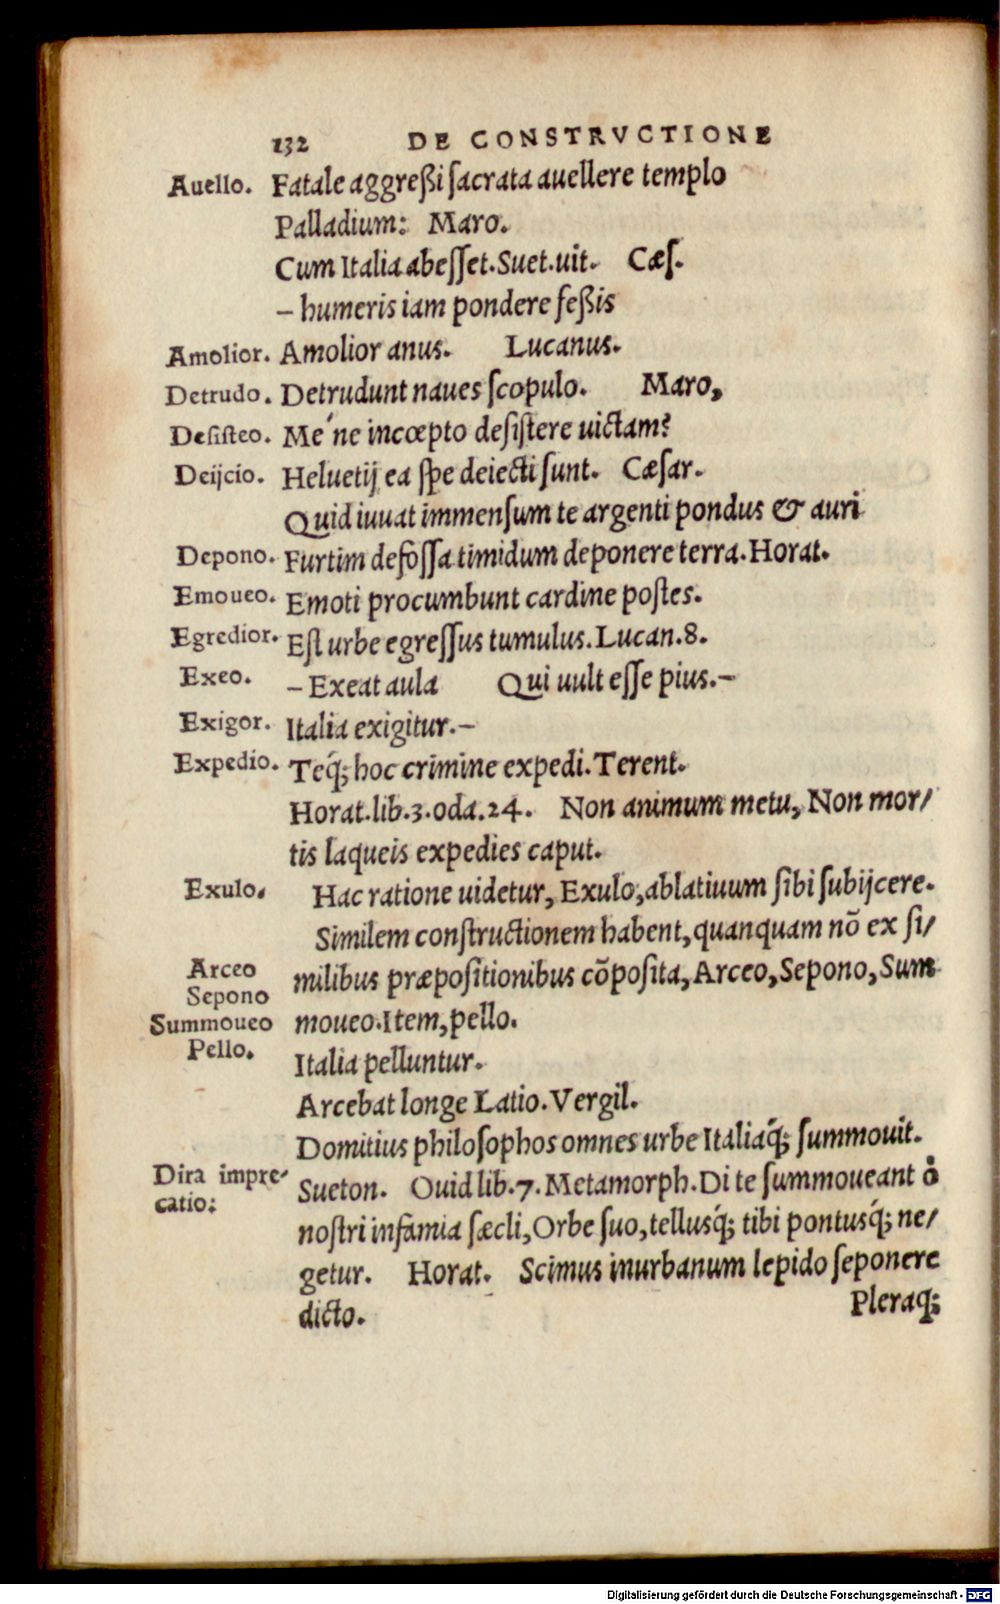 132 DE CONSTRVCTIONE
Auello. Fatale aggreßi ſacrata auellere templo
Palladium: Maro.
Cum Italia abeſſet. Suet. uit. Cæſ.
– humeris iam pondere feßis
Amolior. Amolior anus. Lucanus.
Detrudo. Detrudunt naues ſcopulo. Maro,
Deſiſteo. Me´ne incœpto deſiſtere uictam?
Deijcio. Heluetij ea ſpe deiecti ſunt. Cæſar.
Quid iuuat immenſum te argenti pondus & auri
Depono. Furtim defoſſa timidum deponere terra. Horat.
Emoueo. Emoti procumbunt cardine poſtes.
Egredior. Eſt urbe egreſſus tumulus. Lucan. 8.
Exeo. – Exeat aula Qui uult eſſe pius. –
Exigor. Italia exigitur. –
Expedio. Teq́; hoc crimine expedi. Terent.
Horat. lib. 3. oda. 24. Non animum metu, Non mor/
tis laqueis expedies caput.
Exulo. Hac ratione uidetur, Exulo, ablatiuum ſibi ſubijcere.
Similem conſtructionem habent, quanquam nō ex ſi/
Arceo milibus præpoſitionibus cōpoſita, Arceo, Sepono, Sum
Sepono
Summoueo moueo. Item, pello.
Pello.
Italia pelluntur.
Arcebat longe Latio. Vergil.
Domitius philoſophos omnes urbe Italiaq́; ſummouit.
Dira impre/ Sueton. Ouid lib. 7. Metamorph. Di te ſummoueant ô
catio: noſtri infamia ſæcli, Orbe ſuo, tellusq́; tibi pontusq́; ne/
getur. Horat. Scimus inurbanum lepido ſeponere
dicto. Pleraq;
Digitalisierung gefördert durch die Deutsche Forschungsgemeinschaft - DFG